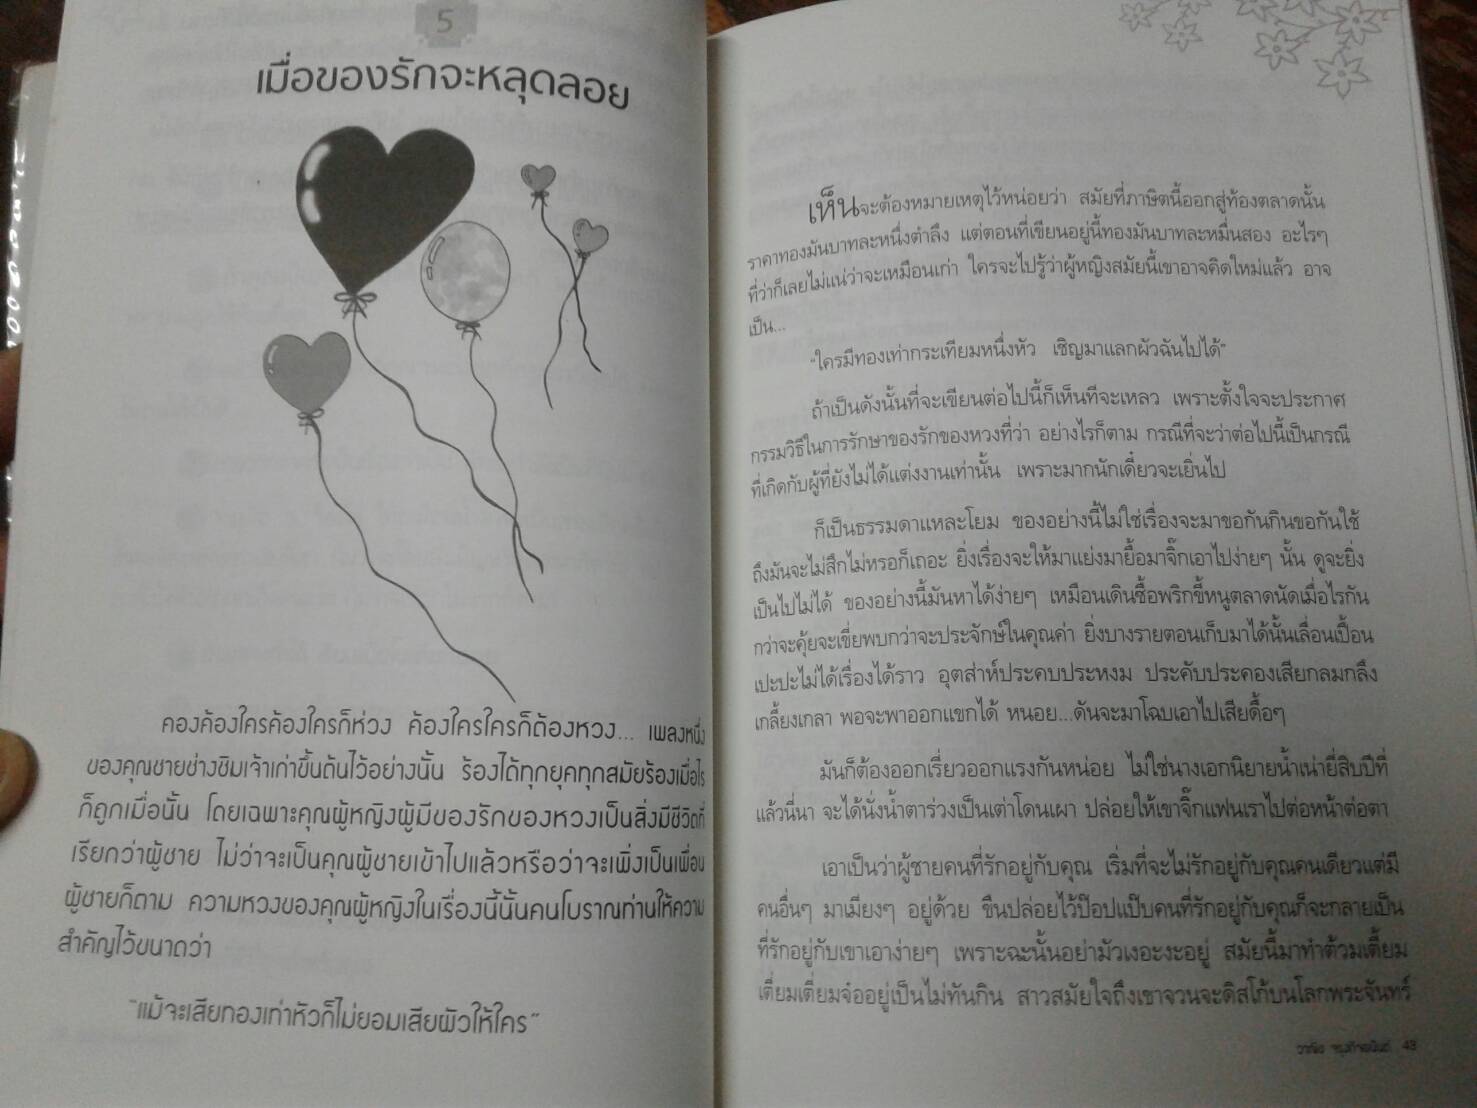 5
เมื่อของรักจะหลุดลอย
คองค้องใครค้องใครก็ห่วง ค้องใครใครก็ต้องหวง... เพลงหนึ่ง
ของคุณชายช่างชิมเจ้าเก่าขึ้นต้นไว้อย่างนั้น ร้องได้ทุกยุคทุกสมัยร้องเมื่อไร
ก็ถูกเมื่อนั้น โดยเฉพาะคุณผู้หญิงผู้มีของรักของหวงเป็นสิ่งมีชีวิตที่
เรียกว่าผู้ชาย ไม่ว่าจะเป็นคุณผู้ชายเข้าไปแล้วหรือว่าจะเพิ่งเป็นเพื่อน
ผู้ชายก็ตาม ความหวงของคุณผู้หญิงในเรื่องนี้นั้นคนโบราณท่านให้ความ
สำคัญไว้ขนาดว่า
"แม้จะเสียทองเท่าหัวก็ไม่ยอมเสียผัวให้ใคร"
เห็นจะต้องหมายเหตุไว้หน่อยว่า สมัยที่ภาษิตนี้ออกสู่ท้องตลาดนั้น
ราคาทองมันบาทละหนึ่งตำลึง แต่ตอนที่เขียนอยู่นี้ทองมันบาทละหมื่นสอง อะไรๆ
ที่ว่าก็เลยไม่แน่ว่าจะเหมือนเก่า ใครจะไปรู้ว่าผู้หญิงสมัยนี้เขาอาจคิดใหม่แล้ว อาจ
เป็น...
"ใครมีทองเท่ากระเทียมหนึ่งหัว เชิญมาแลกผัวฉันไปได้"
ถ้าเป็นดังนั้นที่จะเขียนต่อไปนี้ก็เห็นทีจะเหลว เพราะตั้งใจจะประกาศ
กรรมวิธีในการรักษาของรักของหวงที่ว่า อย่างไรก็ตาม กรณีที่จะว่าต่อไปนี้เป็นกรณี
ที่เกิดกับผู้ที่ยังไม่ได้แต่งงานเท่านั้น เพราะมากนักเดี๋ยวจะเยิ่นไป
ก็เป็นธรรมดาแหละโยม ของอย่างนี้ไม่ใช่เรื่องจะมาขอกันกินขอกันใช้
ถึงมันจะไม่สึกไม่หรอก็เถอะ ยิ่งเรื่องจะให้มาแย่งมายื้อมาจิ๊กเอาไปง่ายๆ นั้น ดูจะยิ่ง
เป็นไปไม่ได้ ของอย่างนี้มันหาได้ง่ายๆ เหมือนเดินซื้อพริกขี้หนูตลาดนัดเมื่อไรกัน
กว่าจะคุ้ยจะเขี่ยพบกว่าจะประจักษ์ในคุณค่า ยิ่งบางรายตอนเก็บมาได้นั้นเลื่อนเปื้อน
เปะปะไม่ได้เรื่องได้ราว อุตส่าห์ประคบประหงม ประคับประคองเสียกลมกลึง
เกลี้ยงเกลา พอจะพาออกแขกได้ หนอย...ดันจะมาโฉบเอาไปเสียดื้อๆ
มันก็ต้องออกเรี่ยวออกแรงกันหน่อย ไม่ใช่นางเอกนิยายน้ำเน่ายี่สิบปีที่
แล้วนี่นา จะได้นั่งน้ำตาร่วงเป็นเต่าโดนเผา ปล่อยให้เขาจิ๊กแฟนเราไปต่อหน้าต่อตา
เอาเป็นว่าผู้ชายคนที่รักอยู่กับคุณ เริ่มที่จะไม่รักอยู่กับคุณคนเดียวแต่มี
คนอื่นๆ มาเมียงๆ อยู่ด้วย ขืนปล่อยไว้ป๊อปแป๊บคนที่รักอยู่กับคุณก็จะกลายเป็น
ที่รักอยู่กับเขาเอาง่ายๆ เพราะฉะนั้นอย่ามัวเงอะงะอยู่ สมัยนี้มาทำต้วมเตี้ยม
เตี่ยมเตี่ยมจ๋ออยู่เป็นไม่ทันกิน สาวสมัยใจถึงเขาจวนจะดิสโก้บนโลกพระจันทร์
43